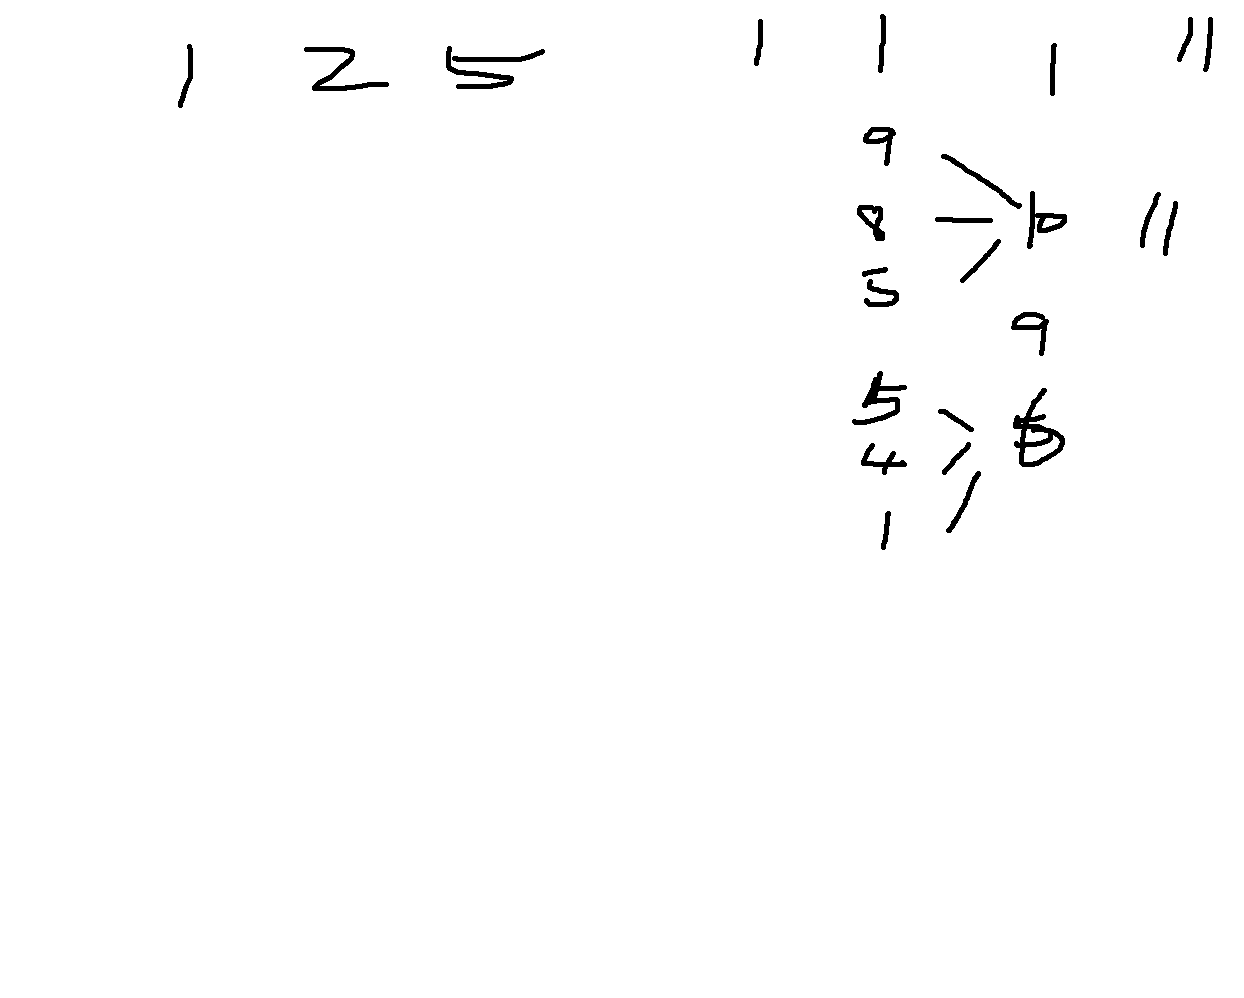 1 2 5 1 1 1 11
9
8 10 11
5
9
5
4
1